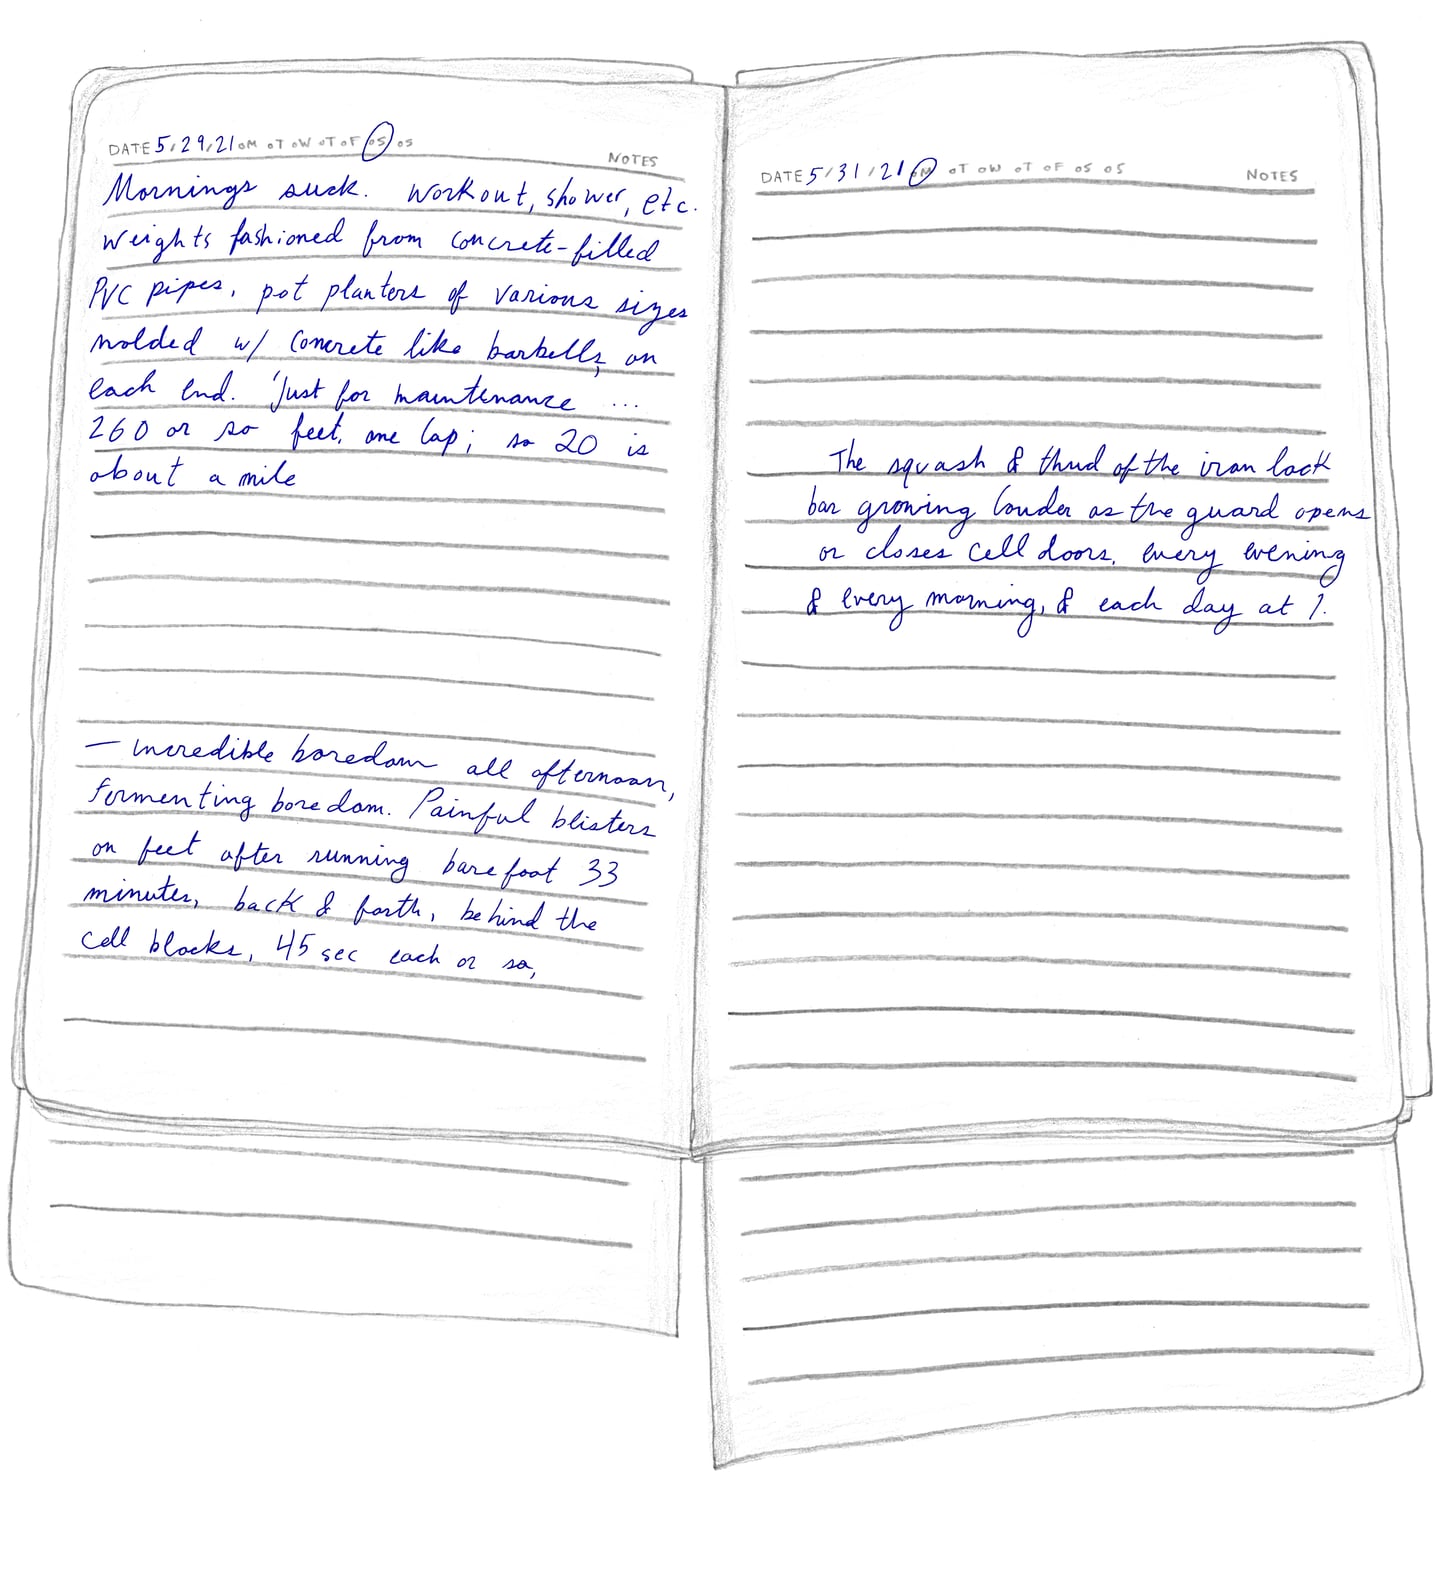 DATE 5/29/21 oM oT oW oT oF oS oS
NOTES
Mornings suck. Workout, shower, etc.
Weights fashioned from concrete-filled
PVC pipes, pot planters of various sizes
molded w/ concrete like barbells, on
each end. 'Just for maintenance ...
260 or so feet, one lap; so 20 is
about a mile
— incredible boredom all afternoon,
Fermenting boredom. Painful blisters
on feet after running barefoot 33
minutes, back & forth, behind the
cell blocks, 45 sec each or so,
DATE 5/31/21 oM oT oW oT oF oS oS NOTES
The squash & thud of the iron lock
bar growing louder as the guard opens
or closes cell doors, every evening
& every morning, & each day at 1.